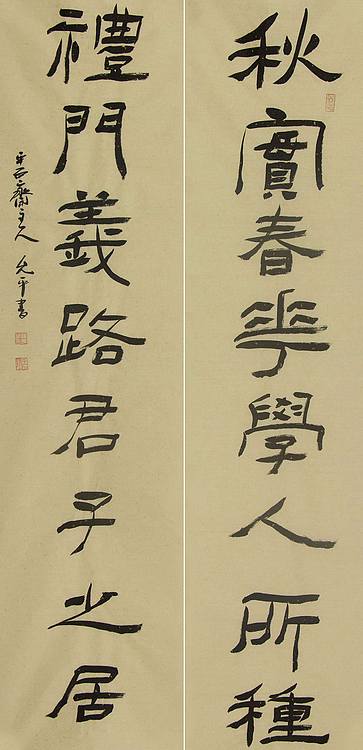 秋實春華學人所種
禮門義路君子之居
允平書